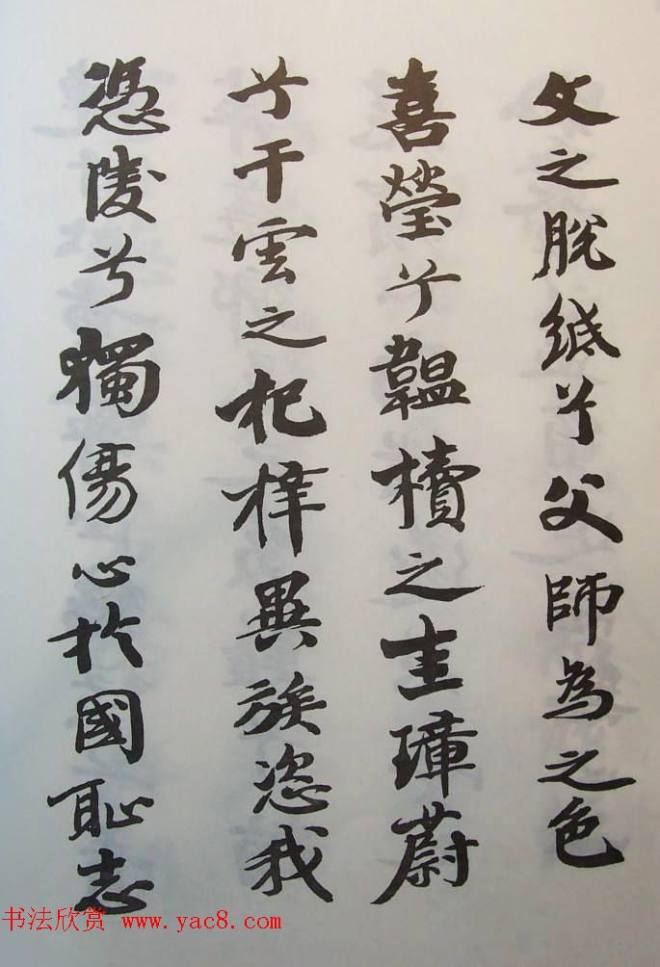 文之脫紙兮父師為之色
喜瑩兮韞櫝之圭璋蔚
兮干雲之杞梓異族恣我
憑陵兮獨傷心於國恥志
书法欣赏 www.yac8.com